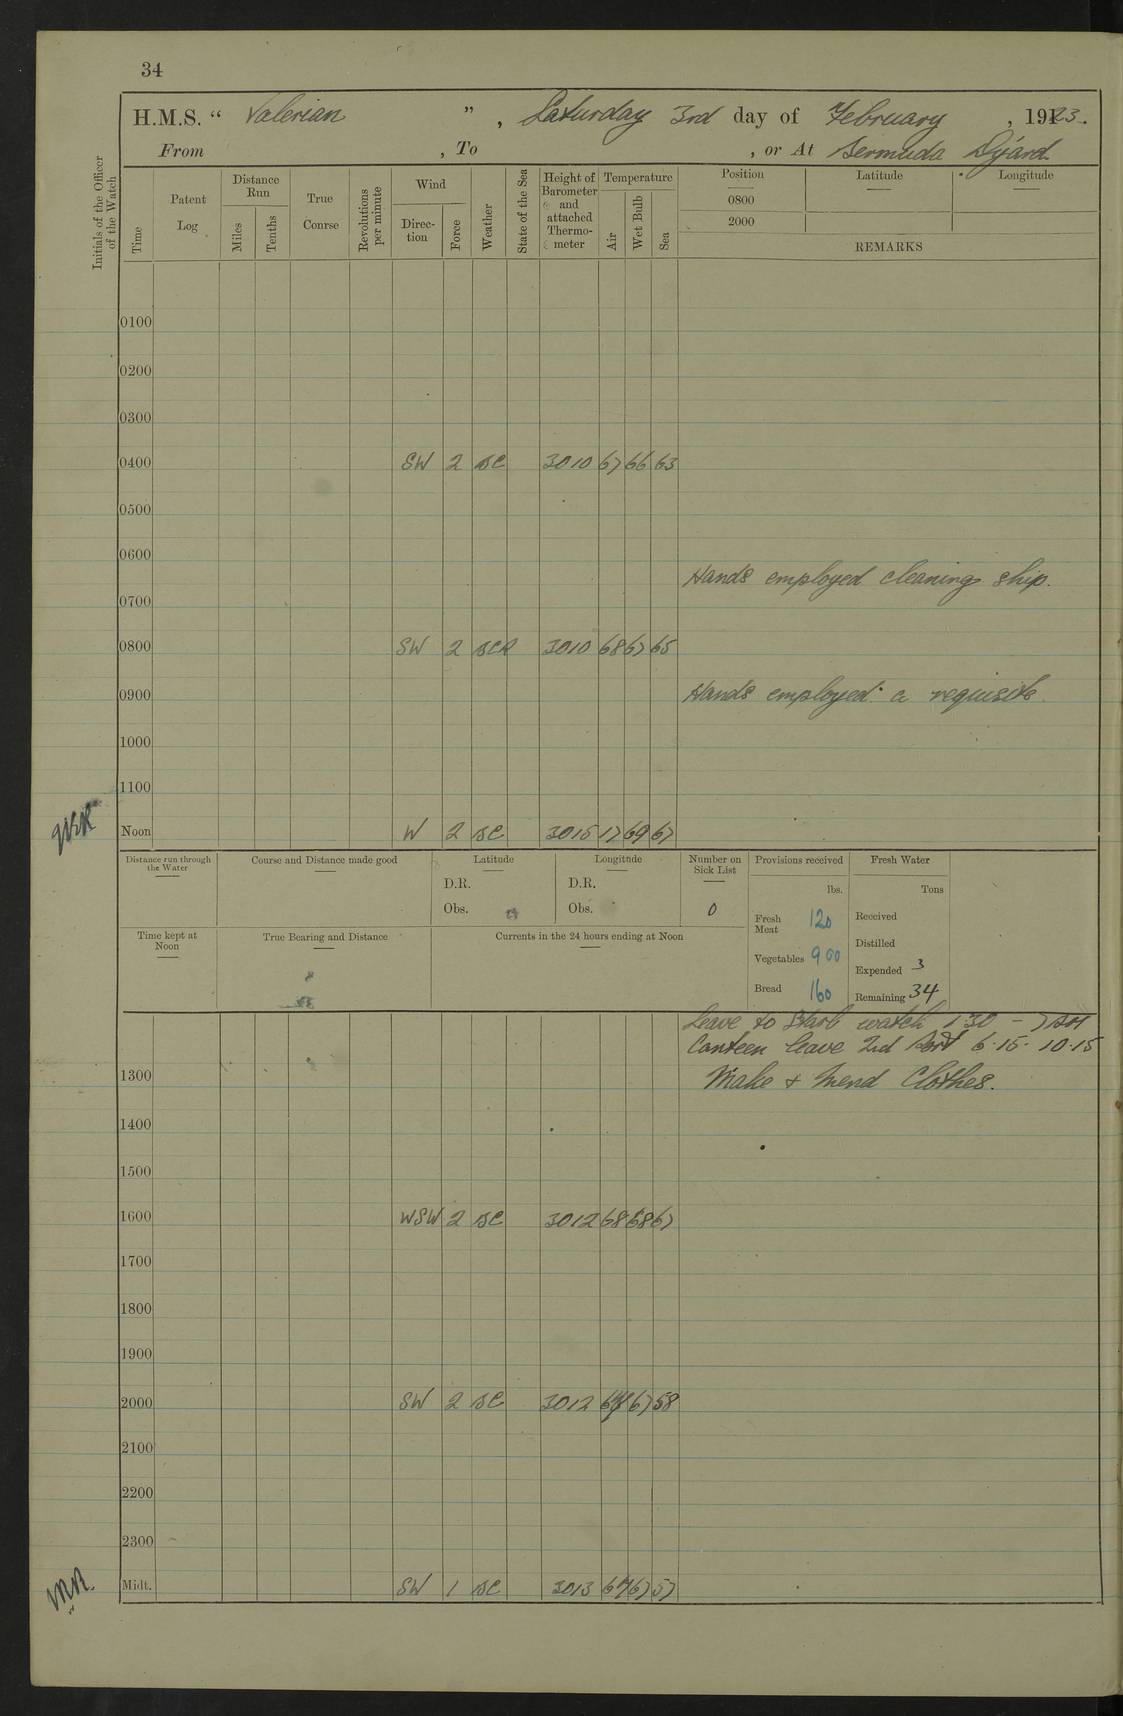 34
H.M.S. “ Valerian ” , Saturday 3rd day of February , 1923.
From , To , or At Bermuda Dyard
Initials of the Officer of the Watch
Time
Patent Log
Distance Run
Miles
Tenths
True Course
Revolutions per minute
Wind
Direction
Force
Weather
State of the Sea
Height of Barometer and attached Thermometer
Temperature
Air
Wet Bulb
Sea
Position Latitude Longitude
0800
2000
REMARKS
0100
0200
0300
0400 SW 2 BC 3010 67 66 63
0500
0600
Hands employed cleaning ship.
0700
0800 SW 2 3010 68 67 65
0900 Hands employed a requisite.
1000
1100
Noon W 2 BC 3015 69 67
Distance run through the Water
Course and Distance made good
Latitude
D.R.
Obs.
Longitude
D.R.
Obs.
Number on Sick List
0
Provisions received
lbs.
Fresh Meat 120
Vegetables 900
Bread 160
Fresh Water
Tons
Received
Distilled
Expended 3
Remaining 34
Time kept at Noon
True Bearing and Distance
Currents in the 24 hours ending at Noon
Leave to Starb watch 1·30 - 7 AM
Canteen leave 2nd Part 6·15· 10·15
1300 Make & Mend Clothes.
1400
1500
1600 WSW 2 BC 3012 68 68 67
1700
1800
1900
2000 SW 2 BC 3012 67 58
2100
2200
2300
Midt. SW 1 BC 3013 67 67 57